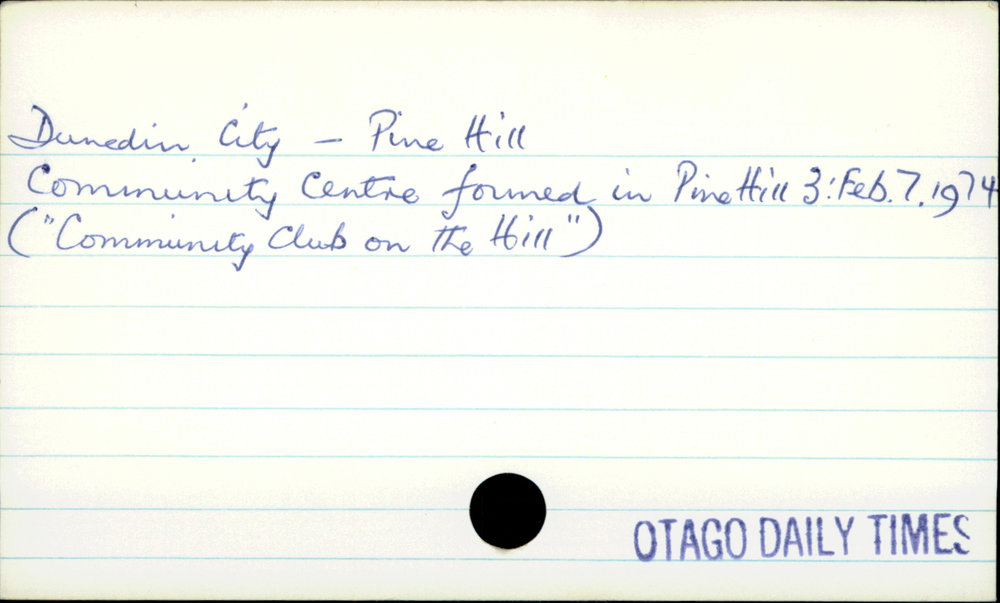 Dunedin City - Pine Hill
Community Centre formed in Pine Hill 3: Feb. 7. 1974
("Community Club on the Hill")
OTAGO DAILY TIMES